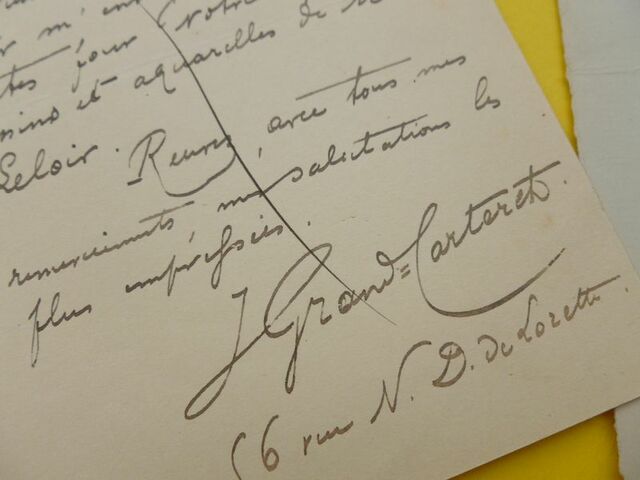 m'en
pour votre
et aquarelles de
Leloir. Recevez, avec tous mes
remerciements, mes salutations les
plus empressées.
J Grand-Carteret.
56 rue N. D. de Lorette.